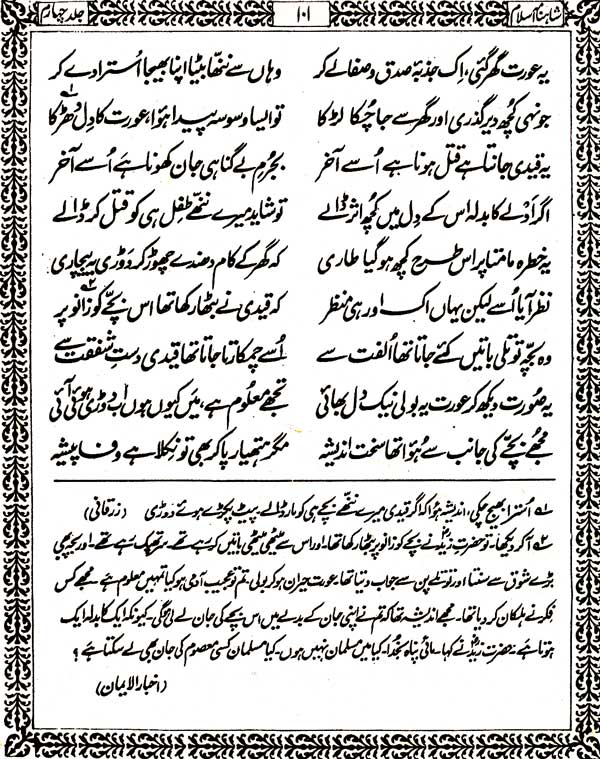 شاہنامہ اسلام ۱۰۱ جلد چہارم
یہ عورت گھر گئی، اِک جذبۂ صدق و صفا لے کر وہاں سے ننھا بیٹا اپنا بھیجا اُسترا دے کر
جونہی کُچھ دیر گذری اور گھر سے جا چُکا لڑکا تو ایسا وسوسہ پیدا ہؤا، عورت کا دِل دھڑکا ۱؎
یہ قیدی جانتا ہے قتل ہونا ہے اُسے آخر بجُرمِ بے گناہی جان کھونا ہے اُسے آخر
اگر اَدلے کا بدلہ اس کے دِل میں کُچھ اثر ڈالے تو شاید میرے ننھے طِفل ہی کو قتل کر ڈالے
یہ خطرہ مامتا پر اس طرح کچھ ہو گیا طاری کہ گھر کے کام دھندے چھوڑ کر دَوڑی یہ بیچاری
نظر آیا اُسے لیکن یہاں اک اور ہی منظر کہ قیدی نے بٹھا رکھا تھا اس بچّے کو زانو پر ۲؎
وہ بچّہ توتلی باتیں کئے جاتا تھا اُلفت سے اُسے چمکارتا جاتا تھا قیدی دستِ شفقت سے
یہ صُورت دیکھ کر عورت یہ بولی نیک دل بھائی تجھے معلُوم ہے، مَیں کیوں یہاں دوڑی ہوئی آئی
مجھے بچّے کی جانب سے ہُوا تھا سخت اندیشہ مگر ہتھیار پا کر بھی تو نِکلا ہے وفا پیشہ
۱؎ اُسترا بھیج چکی، اندیشہ ہُوا کہ اگر قیدی میرے ننھے بچّے ہی کو مار ڈالے۔ پیٹ پکڑے ہوئے دَوڑی (زرقانی)
۲؎ آ کر دیکھا۔ تو حضرت زیدؓ نے بچّے کو زانو پر بٹھا رکھا تھا۔ اور اس سے میٹھی میٹھی باتیں کر رہے تھے۔ تھپک رہے تھے۔ اور بچّہ بھی
بڑے شوق سے سنتا اور توتلے پن سے جواب دیتا تھا۔ عورت حیران ہو کر بولی، تم تو عجیب آدمی ہو کیا تمہیں معلوم ہے۔ مجھے کس
فِکر نے ہلکان کر دیا تھا۔ مجھے اندیشہ تھا کہ تم نے اپنی جان کے بدلے میں اس بچّے کی جان لے لی ہوگی۔ کیونکہ ایک کا بدلہ ایک
ہوتا ہے۔ حضرت زیدؓ نے کہا۔ مائی پناہ بخُدا۔ کیا میں مسلمان نہیں ہوں۔ کیا مسلمان کسی معصوم کی جان بھی لے سکتا ہے؟
(اخبار الایمان)